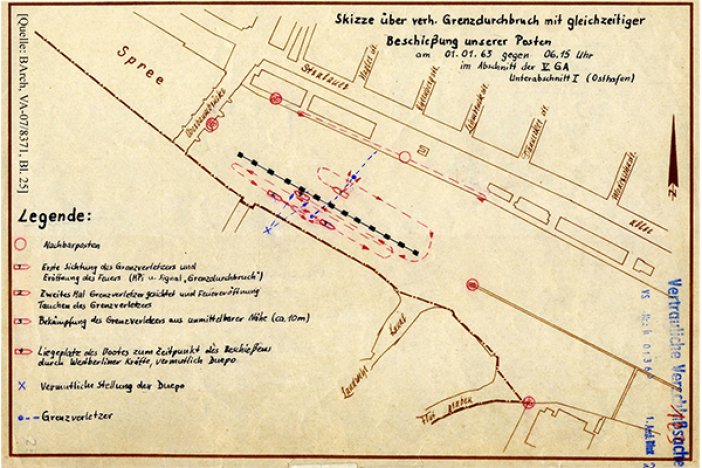 [Quelle: BArch, VA-07/8371, Bl. 25]
Skizze über verh. Grenzdurchbruch mit gleichzeitiger
Beschießung unserer Posten
am 01.01.63 gegen 06.15 Uhr
im Abschnitt der V. GA
Unterabschnitt I (Osthafen)
Spree
Oberbaumbrücke
Stralauer
Allee
Landwehr
Kanal
Flut graben
N
Legende:
Nachbarposten
Erste Sichtung des Grenzverletzers und
Eröffnung des Feuers (MPi u. Signal „Grenzdurchbruch")
Zweites Mal Grenzverletzer gesichtet und Feuereröffnung
Tauchen des Grenzverletzers
Bekämpfung des Grenzverletzers aus unmittelbarer Nähe (ca. 10m)
Liegeplatz des Bootes zum Zeitpunkt des Beschießens
durch Westberliner Kräfte, vermutlich Duepo.
Vermutliche Stellung der Duepo
Grenzverletzer
Vertrauliche Verschlußsache